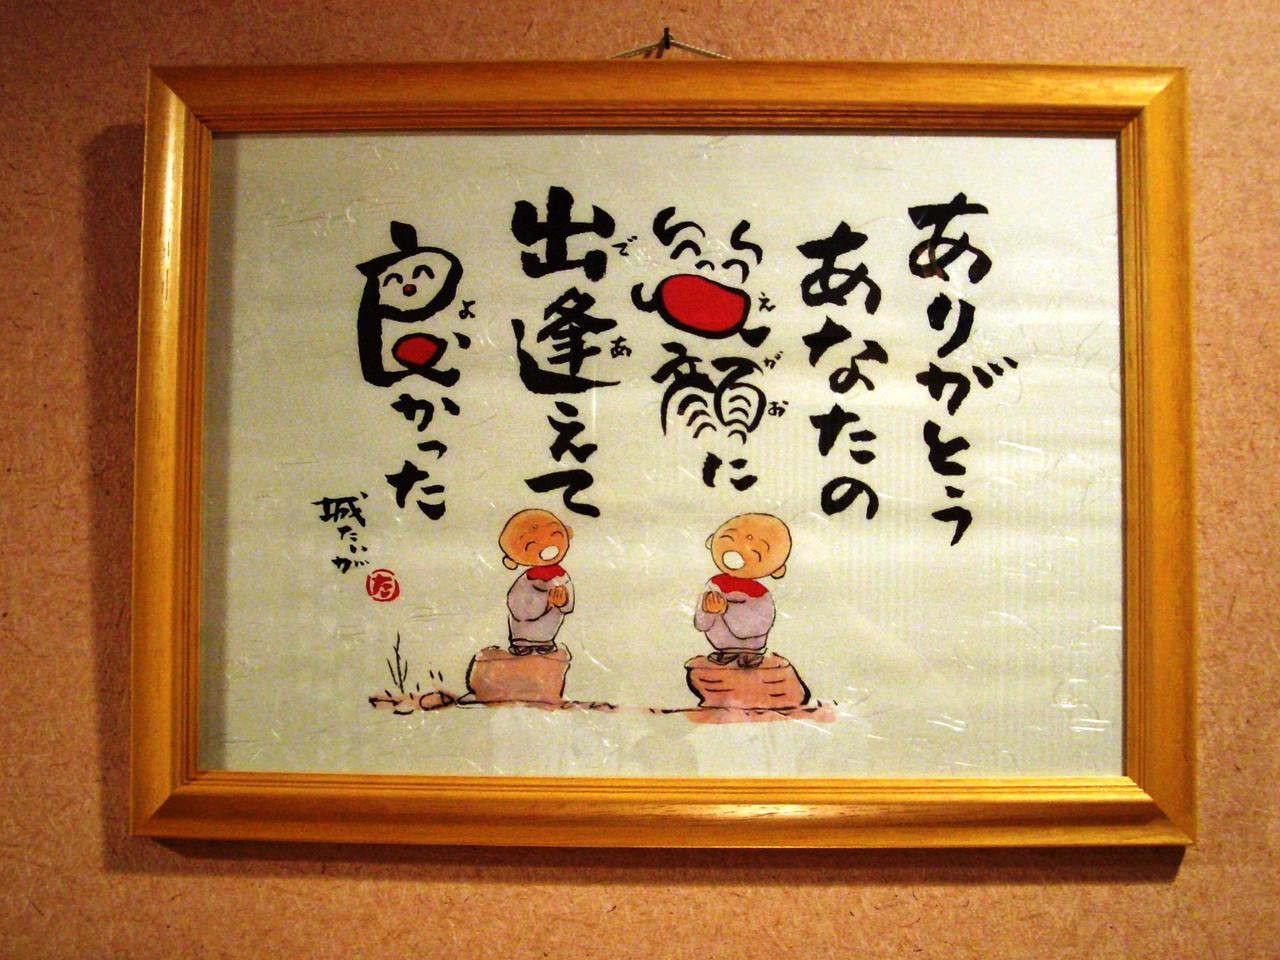 ありがとう
あなたの
笑顔に
えがお
出逢えて
であ
良かった
よ
城たいが
た